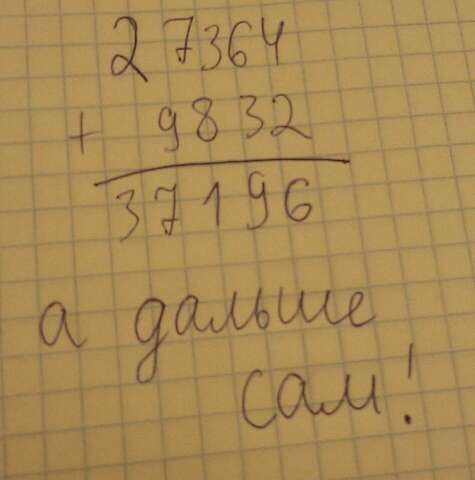 27364
+ 9832
37196
а дальше
сам!